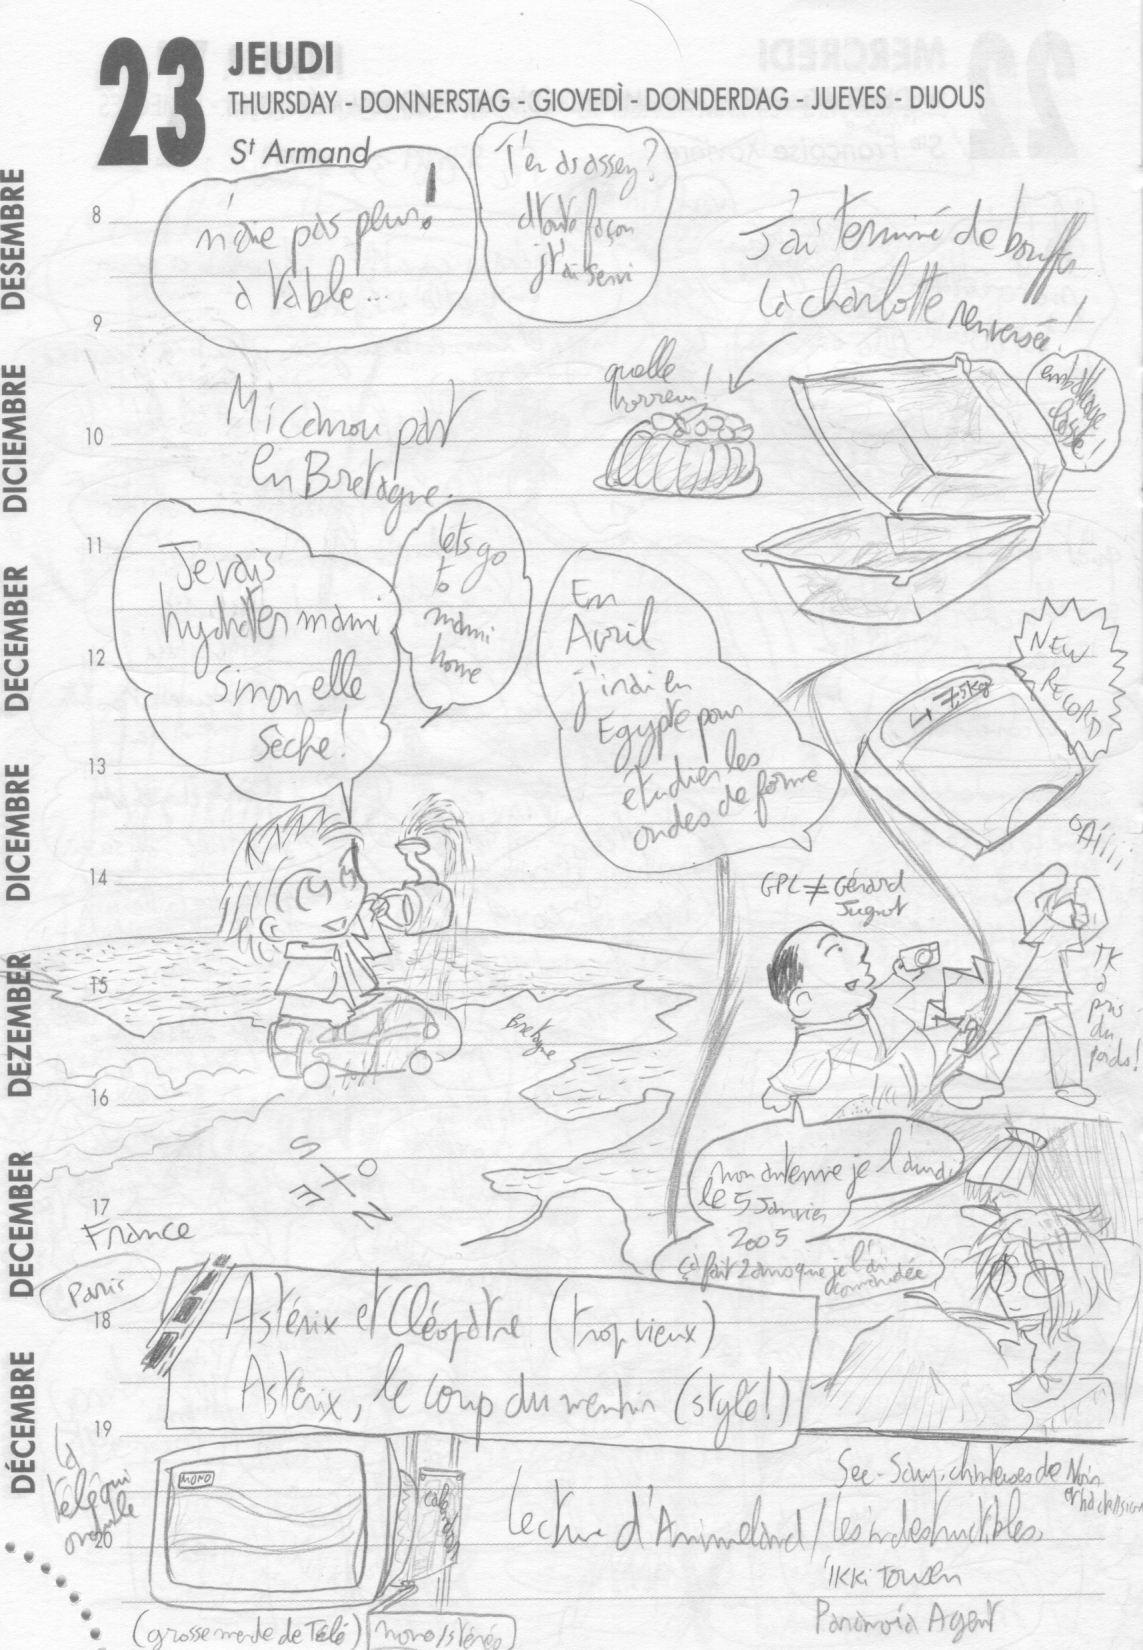 23 JEUDI
THURSDAY - DONNERSTAG - GIOVEDÌ - DONDERDAG - JUEVES - DIJOUS
St Armand
DESEMBRE
DICIEMBRE
DECEMBER
DICEMBRE
DEZEMBER
DECEMBER
DÉCEMBRE
8
9
10
11
12
13
14
15
16
17
18
19
20
n'aie pas peur!
à table...
T'en as assez?
d'toute façon
j't'ai servi
J'ai terminé de bouffer
la charlotte renversée!
quelle
horreur!
emballage
cassé!
Micamou part
en Bretagne.
Je vais
hydrater mami
sinon elle
sèche!
lets go
to
mami
home
En
Avril
j'irai en
Egypte pour
étudier les
ondes de forme
NEW
RECORD
GPL ≠ Gérard
Jugnot
TK
a
pris
du
poids!
Bretagne
S
O
E
N
France
Paris
mon antenne je l'aurai
le 5 Janvier
2005
ça fait 2 ans que je l'ai
commandée
Astérix et Cléopâtre (trop vieux)
Astérix, le coup du menhir (stylé!)
La
télé qui
ondule
MONO
calendrier
(grosse merde de Télé)
mono/stéréo
Lecture d'Animeland / Les indestructibles
Ikki Tousen
Paranoia Agent